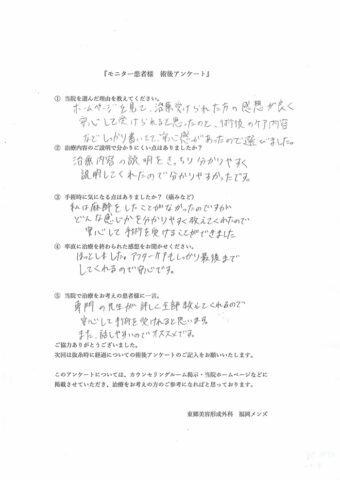 『モニター患者様　術後アンケート』
① 当院を選んだ理由を教えてください。
ホームページを見て、治療受けられた方の感想が良く
安心して受けられると思ったので、術後のケア内容
などしっかり書いてて安心感があったので選びました。
② 治療内容のご説明で分かりにくい点はありましたか？
治療内容の説明をきっちり分かりやすく
説明してくれたので分かりやすかったです。
③ 手術時に気になる点はありましたか？（痛みなど）
私は麻酔をしたことがなかったのですが
どんな感じかを分かりやすく教えてくれたので
安心して手術を受けることができました
④ 率直に治療を終わられた感想をお聞かせください。
ほっとしました。アフターケアもしっかり最後まで
してくれるので安心です。
⑤ 当院で治療をお考えの患者様に一言。
専門の先生が詳しく全部教えてくれるので
安心して手術を受けれると思います。
また、話しやすいのでオススメです。
ご協力ありがとうございました。
次回は抜糸時に経過についての術後アンケートのご記入をお願いいたします。
このアンケートについては、カウンセリングルーム掲示・当院ホームページなどに
掲載させていただき、治療をお考えの方のご参考になればと思っております。
東郷美容形成外科　福岡メンズ